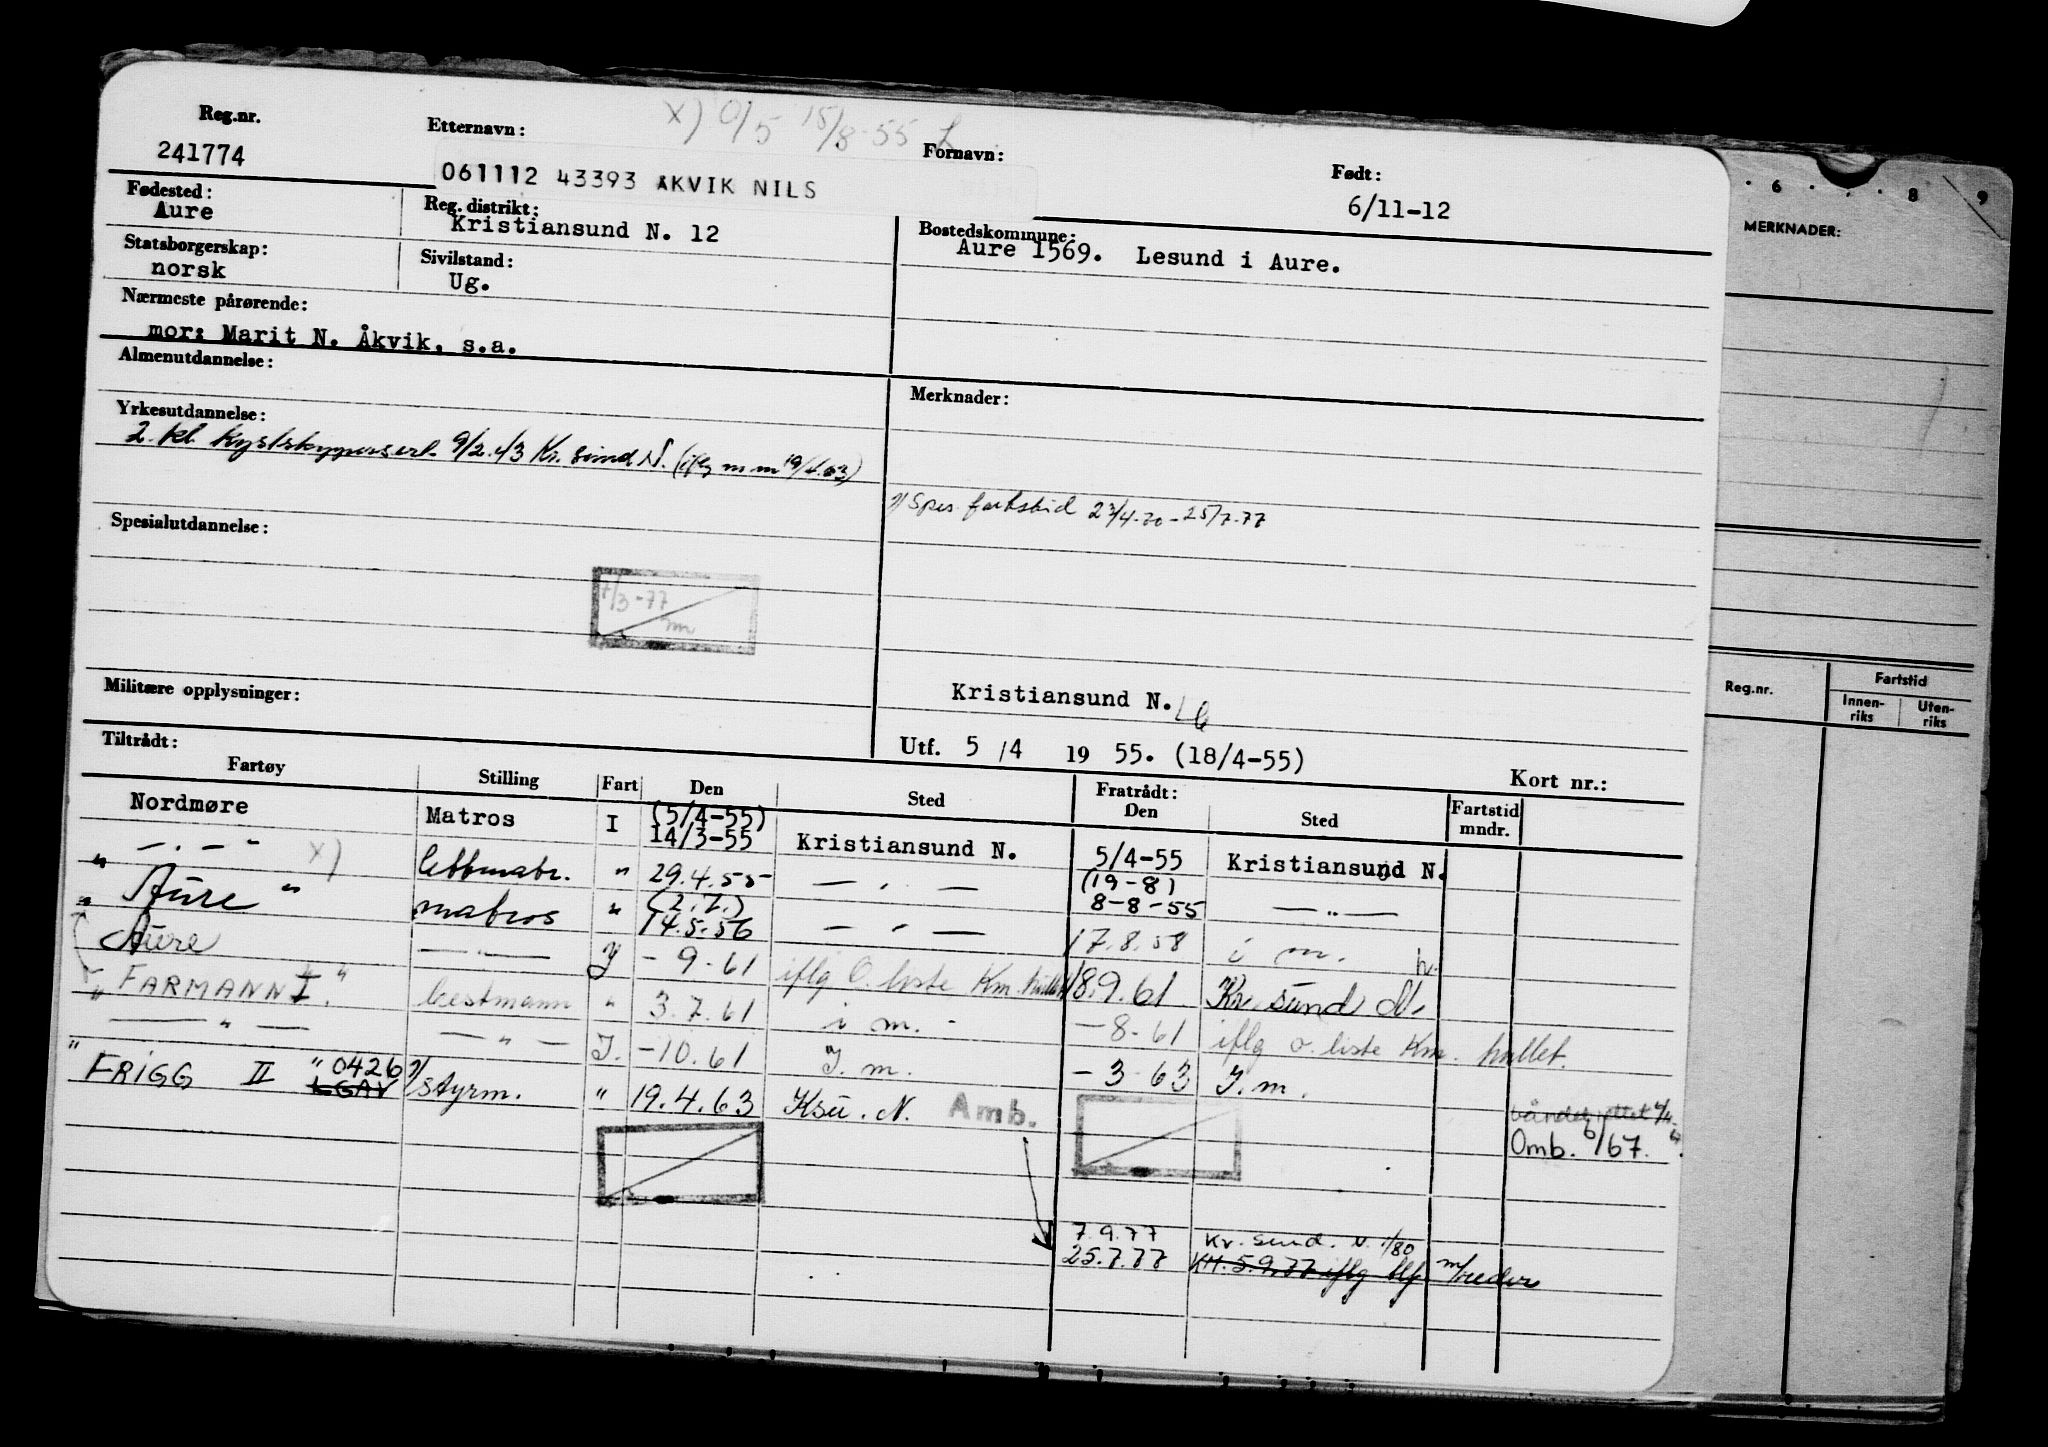 x) 0/5 15/8-55
Reg.nr.
241774
Etternavn:
Fornavn:
061112 43393 AKVIK NILS
Født:
6/11-12
Fødested:
Aure
Reg. distrikt:
Kristiansund N. 12
Bostedskommune:
Aure 1569. Lesund i Aure.
Statsborgerskap:
norsk
Sivilstand:
Ug.
Nærmeste pårørende:
mor: Marit N. Åkvik, s.a.
Almenutdannelse:
Yrkesutdannelse:
2. kl. Kystskippersert. 9/2.43 Kr. sund N. (iflg m m 19/4.63)
Merknader:
2) Spes. fartstid 23/4-70 - 25/7-77
Spesialutdannelse:
7/3-77
Militære opplysninger:
Kristiansund N.
Utf. 5 /4 19 55. (18/4-55)
Kort nr.:
Tiltrådt:
Fratrådt:
Fartøy Stilling Fart Den Sted Den Sted Fartstid mndr.
Nordmøre Matros I (5/4-55) 14/3-55 Kristiansund N. 5/4-55 Kristiansund N.
— . — " x) lettmatr. " 29.4.55 — . — (19-8) 8-8-55 — " —
" Aure " matros " (2.7.) 14.5.56 — " — 17.8.58 i m. h.
" Aure — " — I - 9-61 iflg O. liste Km. hullet 18.9.61 Kr. sund N.
" FARMANN I." bestmann " 3.7.61 i m. - - 8-61 iflg o. liste Km. hullet.
— " — — " — I. -10.61 I. m. - 3 63 I. m.
" FRIGG II " 0426 LGAV 2) styrm. " 19.4.63 Ksu. N. Amb.
Omb. 6/67.
7.9.77 Kr. sund. N. 1/80
25.7.77 KH. 5.9.77 iflg blf m/reders
6 8 9
MERKNADER:
Reg.nr.
Fartstid
Innen-
riks
Uten-
riks